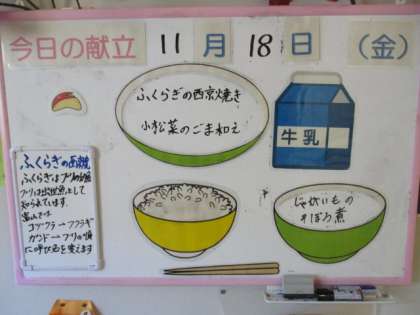 今日の献立 11月18日(金)
ふくらぎの西京焼き
小松菜のごま和え
牛乳
じゃがいもの
そぼろ煮
ふくらぎの
ふくらぎはブリの
ブリは出世魚として
知られています。
富山では
コヅクラ→フクラギ
ガンド→ブリの順
に呼び名を変えます